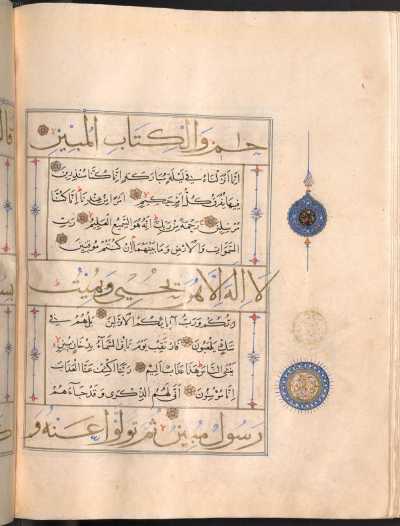 حم والكتاب المبين
انا انزلناه في ليلة مباركة انا كنا منذرين
فيها يفرق كل امر حكيم امرا من عندنا انا كنا
مرسلين رحمة من ربك انه هو السميع العليم رب
السموات والارض وما بينهما ان كنتم موقنين
لا اله الا هو يحيي ويميت
ربكم ورب آبائكم الاولين بل هم في
شك يلعبون فارتقب يوم تاتي السماء بدخان مبين
يغشى الناس هذا عذاب اليم ربنا اكشف عنا العذاب
انا مؤمنون انى لهم الذكرى وقد جاءهم
رسول مبين ثم تولوا عنه و